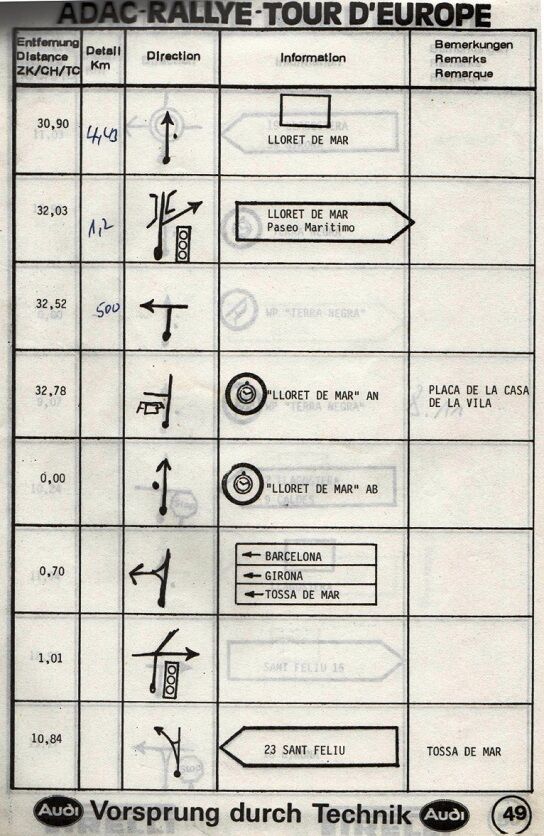 ADAC-RALLYE-TOUR D'EUROPE
Entfernung
Distance
ZK/CH/TC
Detail
Km
Direction
Information
Bemerkungen
Remarks
Remarque
30,90
4,43
LLORET DE MAR
32,03
1,2
LLORET DE MAR
Paseo Maritimo
32,52
500
WP "TERRA-NEGRA"
32,78
"LLORET DE MAR" AN
PLACA DE LA CASA
DE LA VILA
0,00
"LLORET DE MAR" AB
0,70
BARCELONA
GIRONA
TOSSA DE MAR
1,01
SANT FELIU 16
10,84
23 SANT FELIU
TOSSA DE MAR
Audi Vorsprung durch Technik Audi 49